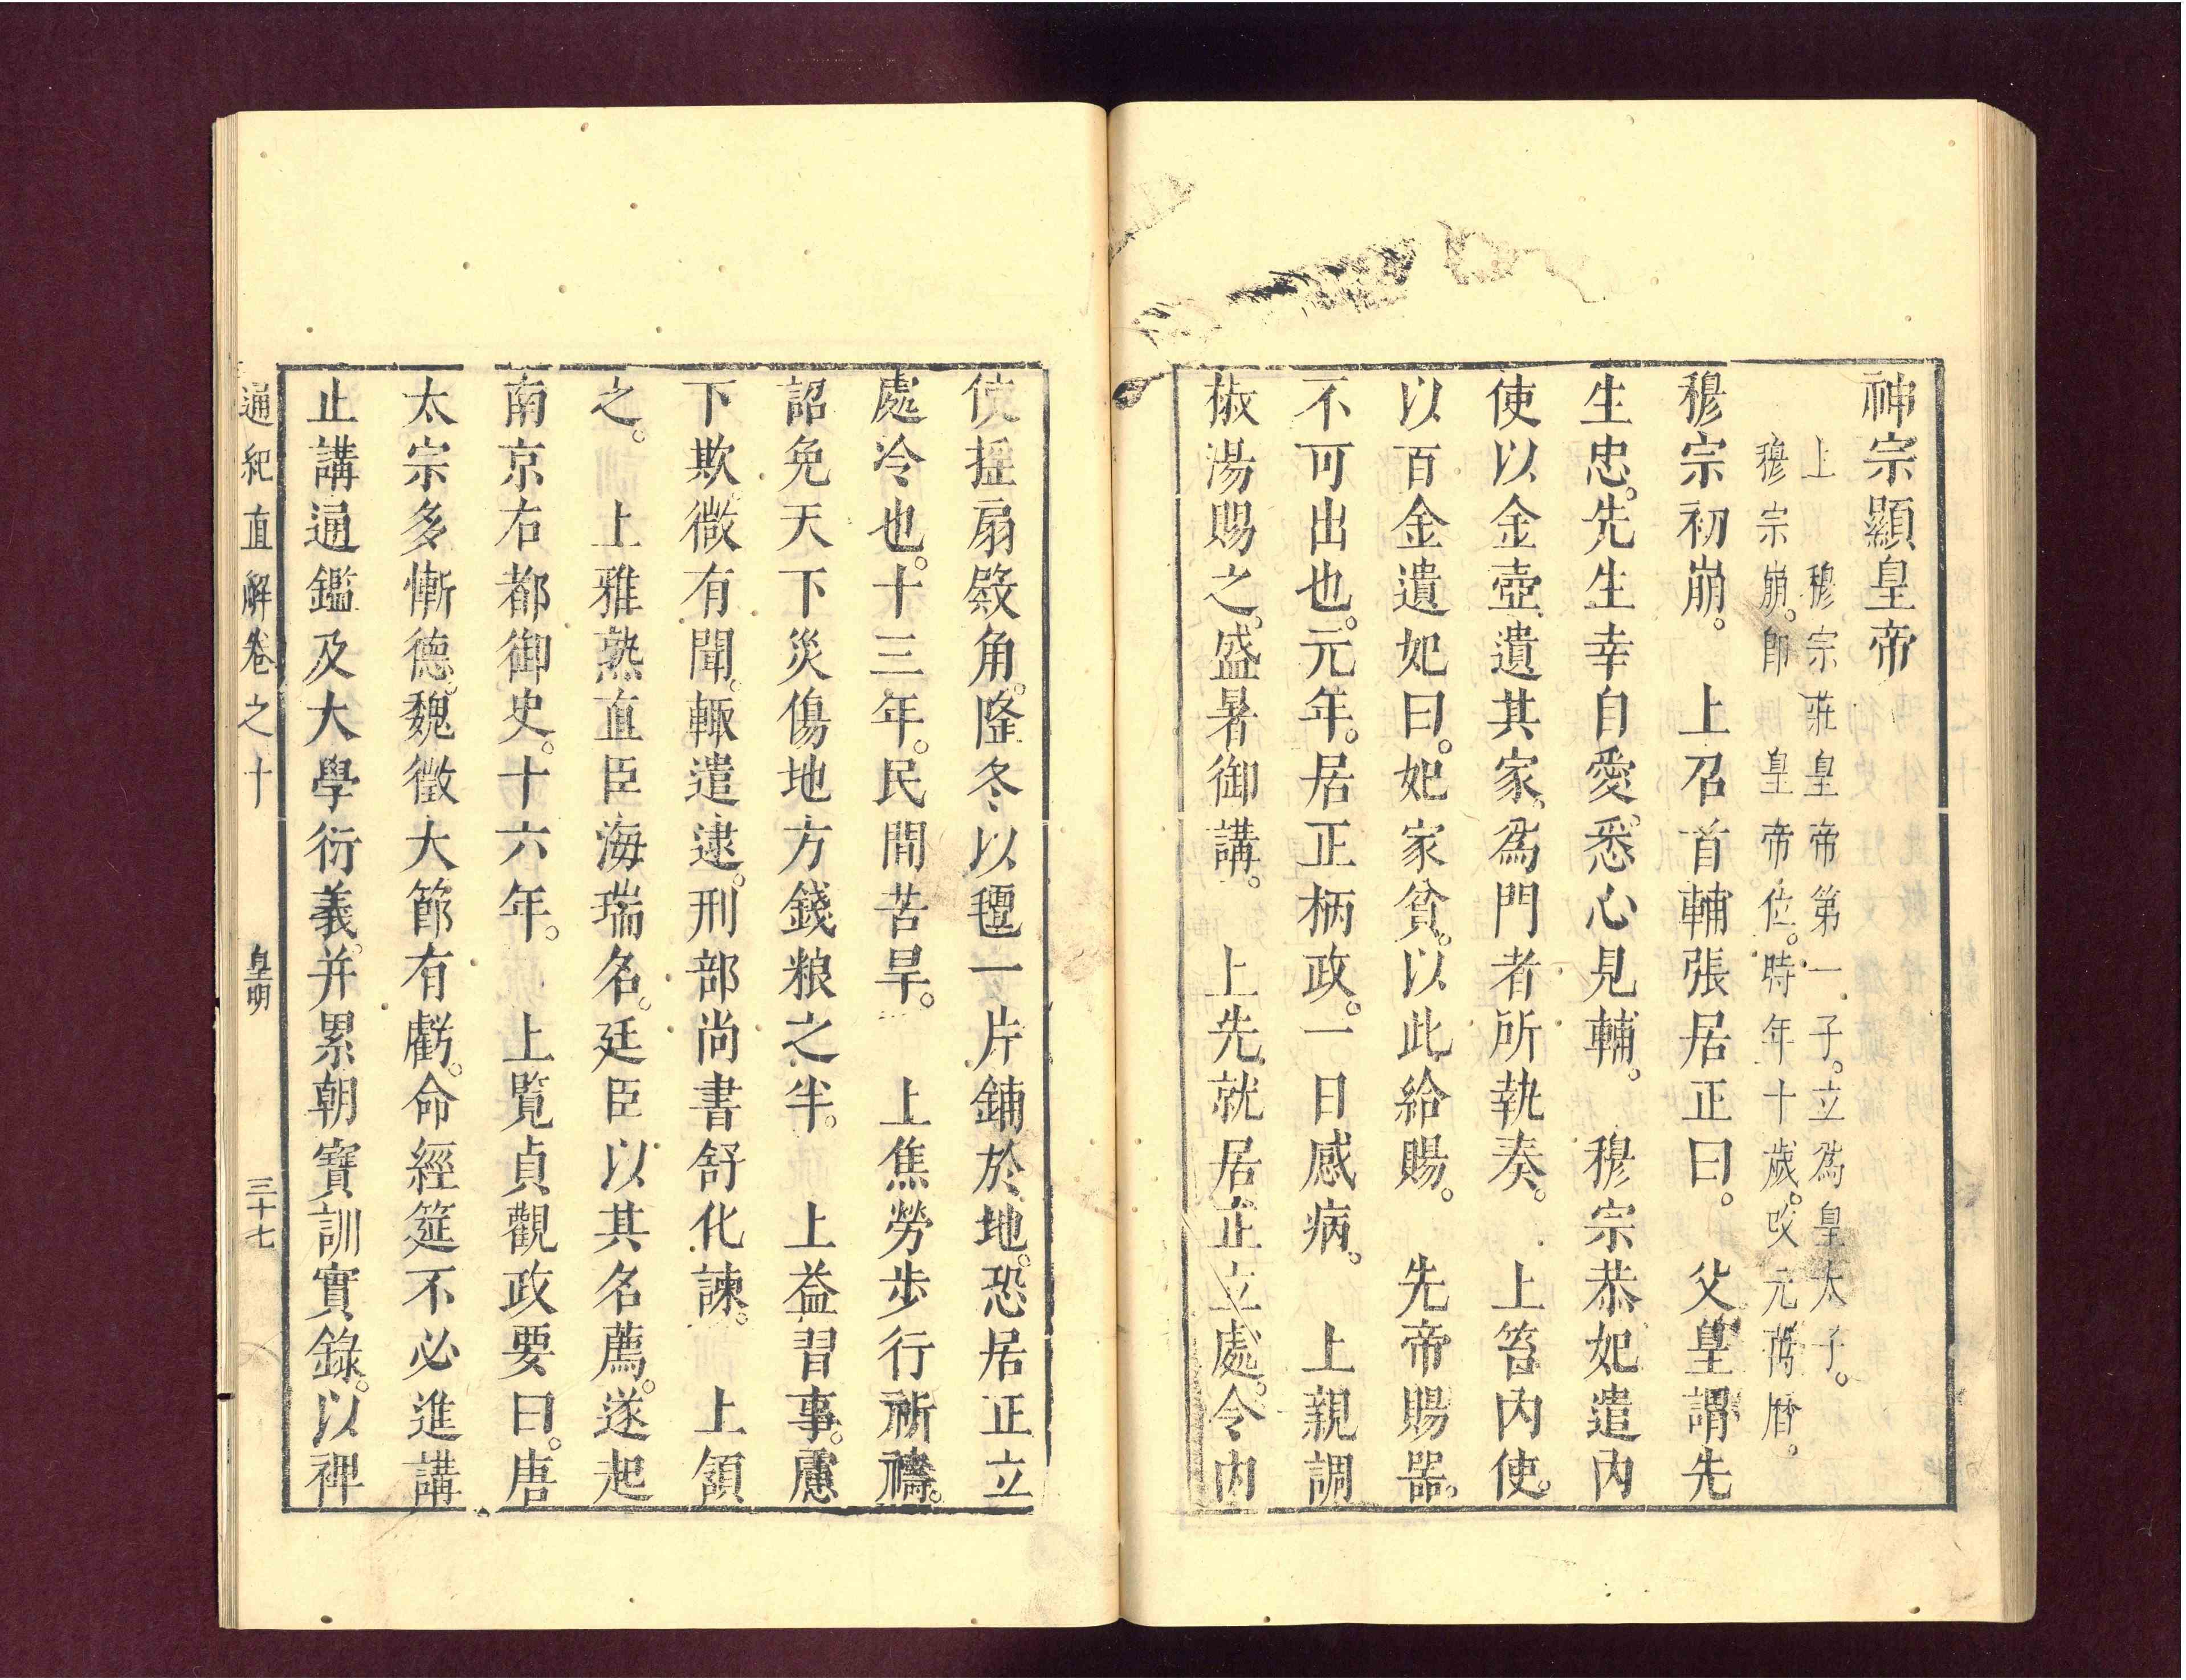 神宗顯皇帝
上　穆宗莊皇帝第一子。立爲皇太子。
穆宗崩。卽　皇帝位。時年十歲。改元萬曆。
穆宗初崩。　上召首輔張居正曰。　父皇謂先
生忠。先生幸自愛。悉心見輔。　穆宗恭妃遣內
使以金壺遺其家。爲門者所執奏。　上笞內使。
以百金遺妃曰。妃家貧。以此給賜。　先帝賜器。
不可出也。元年。居正柄政。一日感病。　上親調
椒湯賜之。盛暑御講。　上先就居正立處。令內
使搖扇殿角。隆冬以氊一片鋪於地。恐居正立
處冷也。十三年。民間苦旱。　上焦勞步行祈禱。
詔免天下災傷地方錢粮之半。　上益習事。慮
下欺。微有聞。輒遣逮。刑部尚書舒化諫。　上頷
之。　上雅熟直臣海瑞名。廷臣以其名薦。遂起
南京右都御史。十六年。　上覽貞觀政要曰。唐
太宗多慚德。魏徵大節有虧。命經筵不必進講
止講通鑑及大學衍義。并累朝寶訓實錄。以裨
通紀直解卷之十　皇明　三十七